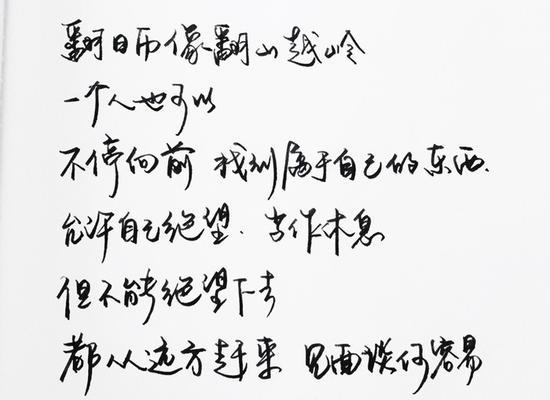 翻日历像翻山越岭
一个人也可以
不停向前 找到属于自己的东西.
允许自己绝望. 当作休息
但不能绝望下去
都从远方赶来 见面谈何容易